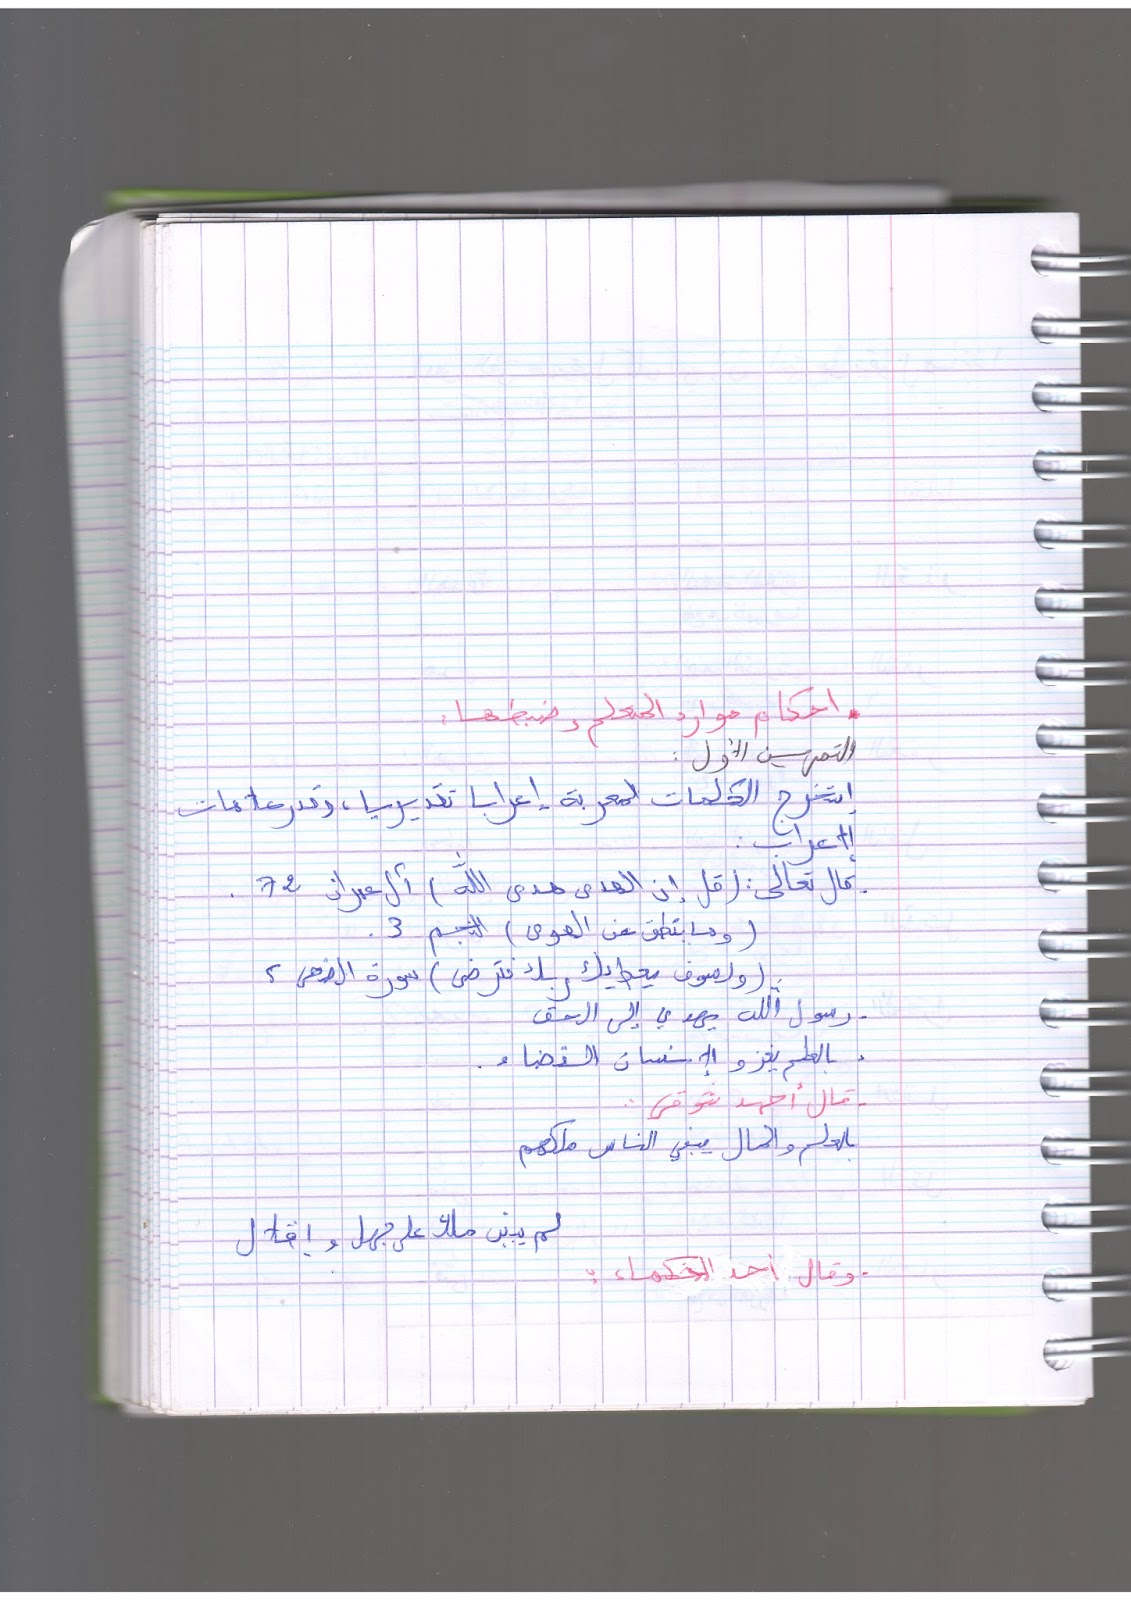 . احكام موارد المتعلم وضبطها.
التمرين الأول :
إستخرج الكلمات المعربة إعرابا تقديريا، وقدر علامات
الإعراب :
. قال تعالى : (قل إن الهدى هدى الله) آل عمران 72 .
(وما ينطق عن الهوى) النجم 3 .
. (ولسوف يعطيك ربك فترضى) سورة الضحى 5
. رسول الله يهدي إلى الحق
. بالعلم يغزو الإنسان الفضاء .
. قال أحمد شوقي :
بالعلم والمال يبني الناس ملكهم
لم يبن ملك على جهل وإقلال
. وقال أحد الحكماء :